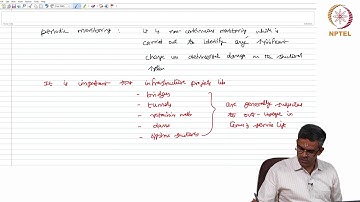 NPTEL
Periodic monitoring : it is non continuous monitoring which is
carried out to identify any significant
change or detrimental damage in the structural
system
It is important for infrastructure projects like
- bridges
- tunnels
- retaining walls
- dams
- offshore structures
are generally
to over-usage in
service life